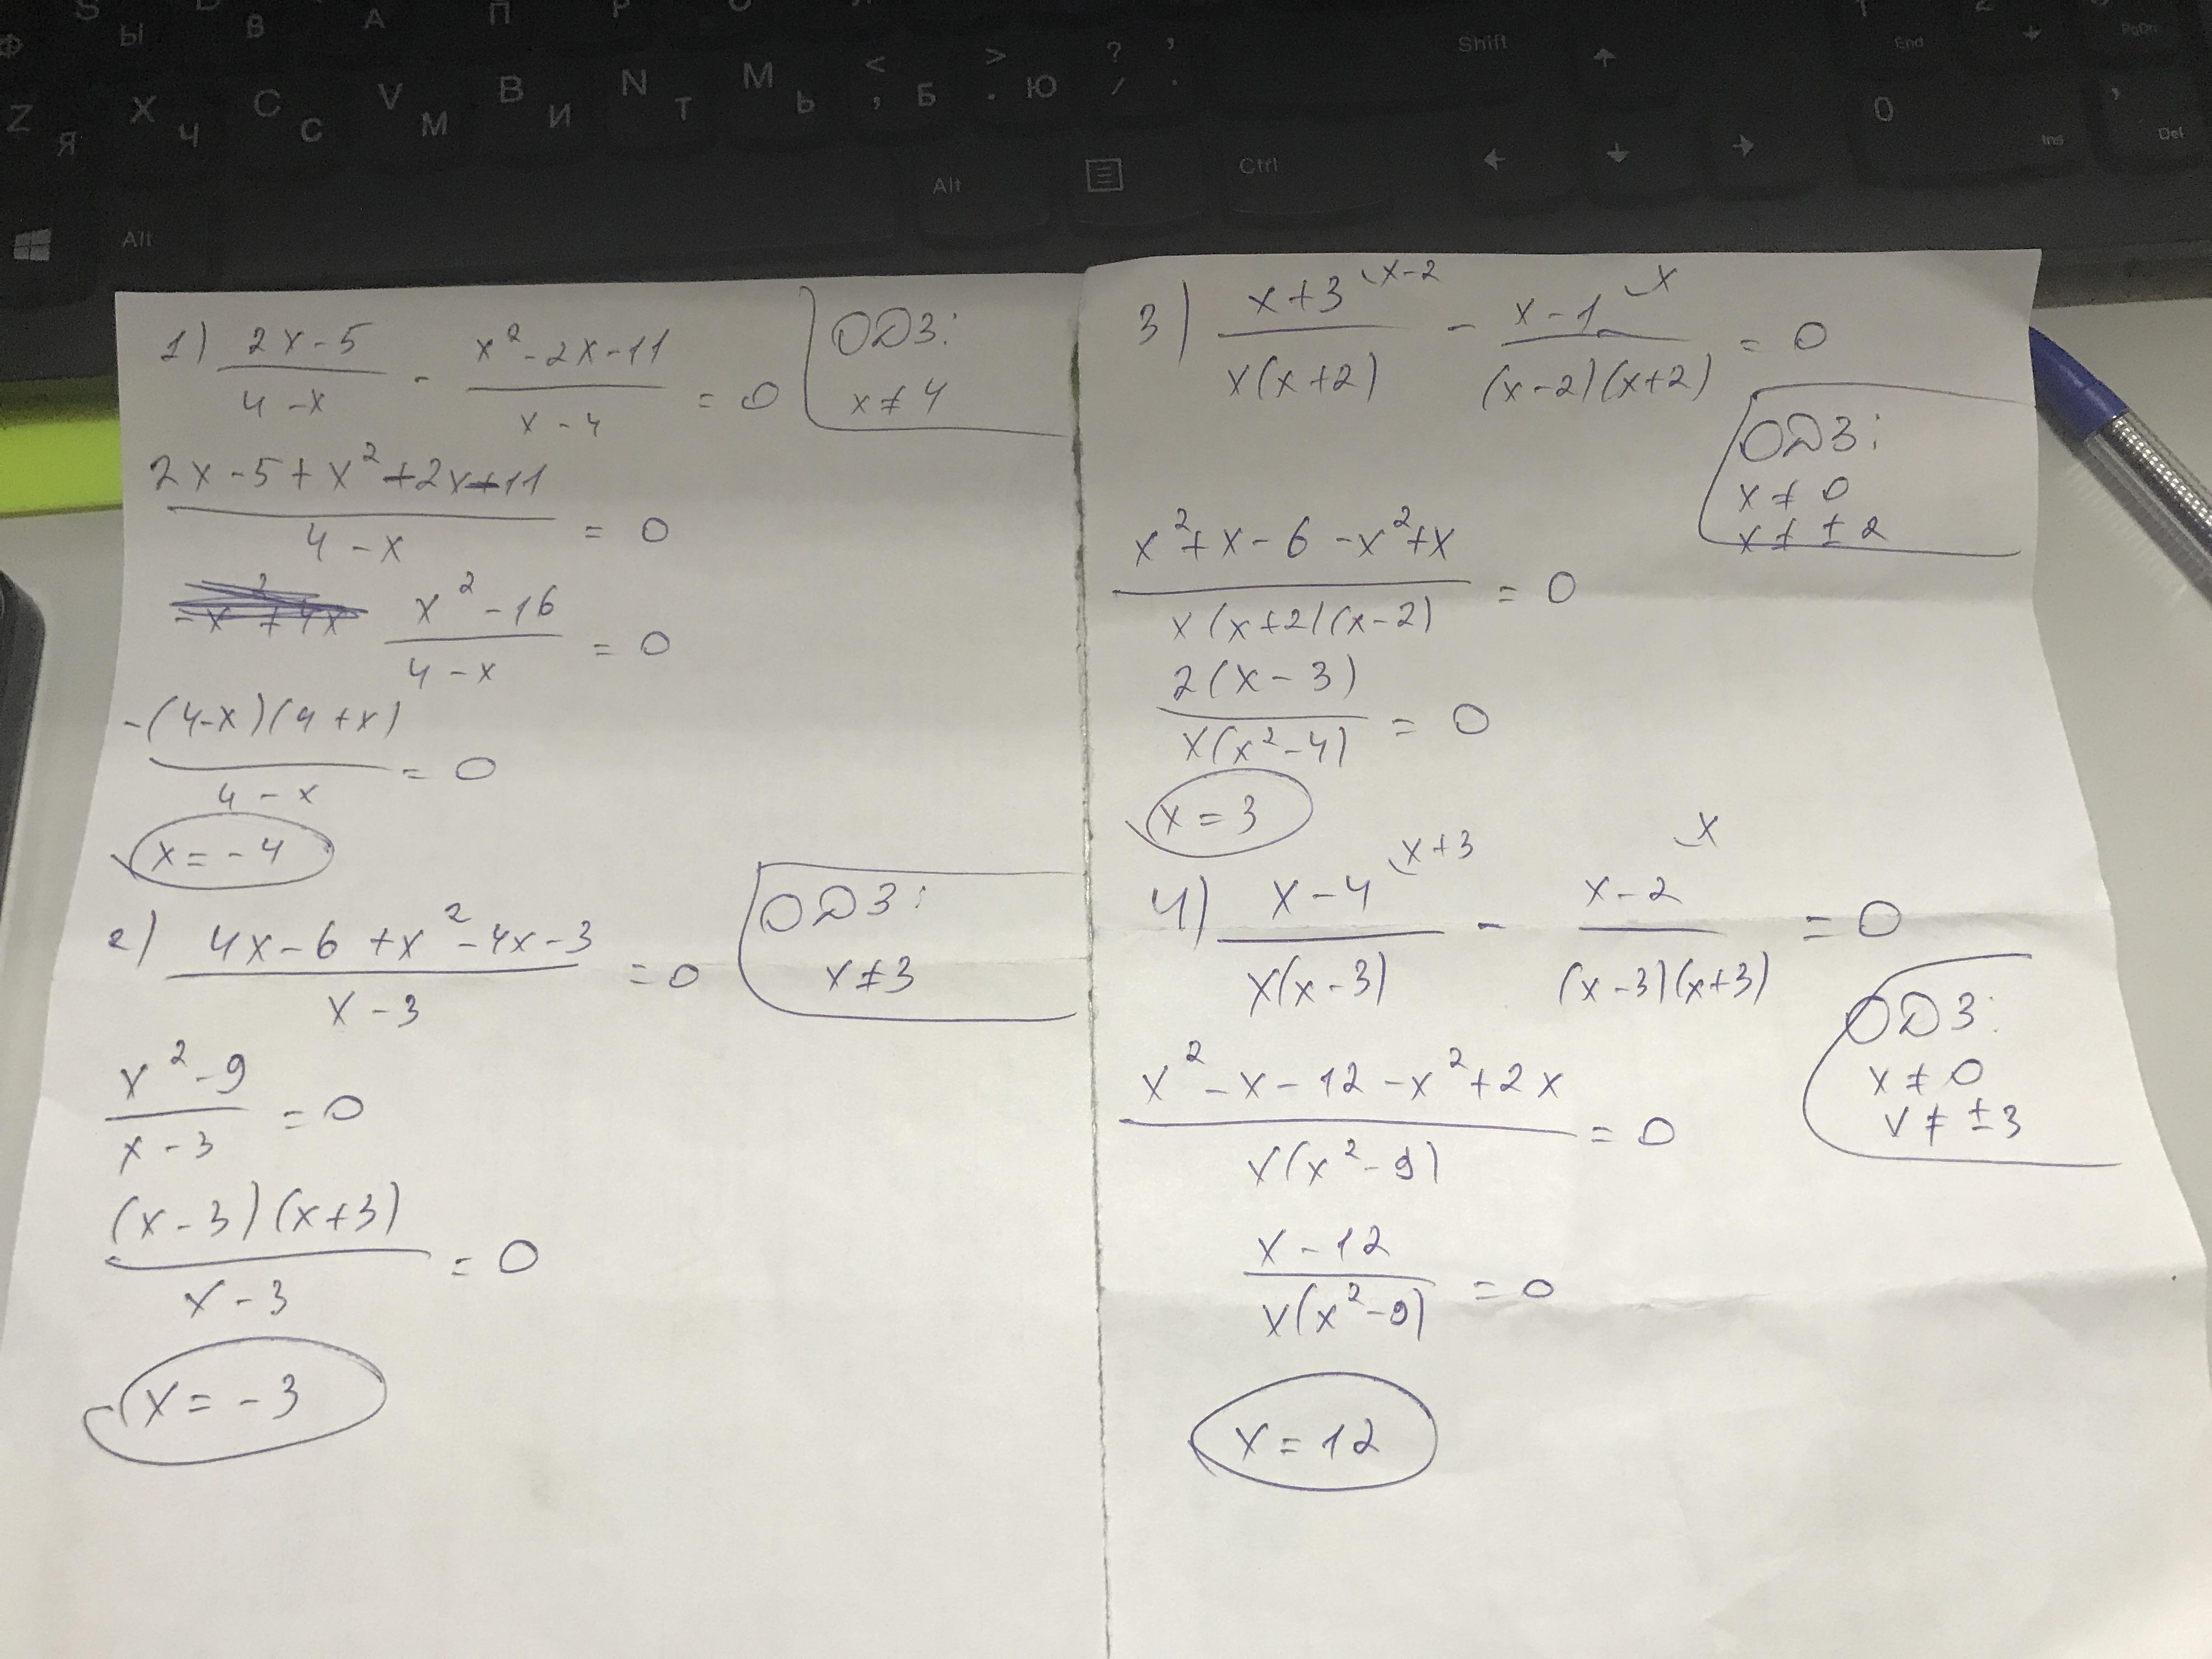 S D
Ф Ы В А П Р О
Z Я X Ч C С V М B И N Т M Ь < , Б > . Ю ? / , . Shift ↑ 1 End 2 ↓ PgDn
Alt Alt Ctrl ← ↓ → 0 Ins , . Del
1) (2x-5)/(4-x) - (x²-2x-11)/(x-4) = 0
ОДЗ:
x≠4
(2x-5+x²+2x+11)/(4-x) = 0
(x²-16)/(4-x) = 0
(-(4-x)(4+x))/(4-x) = 0
x = -4
2) (4x-6+x²-4x-3)/(x-3) = 0
ОДЗ:
x≠3
(x²-9)/(x-3) = 0
((x-3)(x+3))/(x-3) = 0
x = -3
3) (x+3 \x-2)/(x(x+2)) - (x-1 \x)/((x-2)(x+2)) = 0
ОДЗ:
x≠0
x≠±2
(x²+x-6-x²+x)/(x(x+2)(x-2)) = 0
(2(x-3))/(x(x²-4)) = 0
x = 3
4) (x-4 \x+3)/(x(x-3)) - (x-2 \x)/((x-3)(x+3)) = 0
ОДЗ:
x≠0
x≠±3
(x²-x-12-x²+2x)/(x(x²-9)) = 0
(x-12)/(x(x²-9)) = 0
x = 12